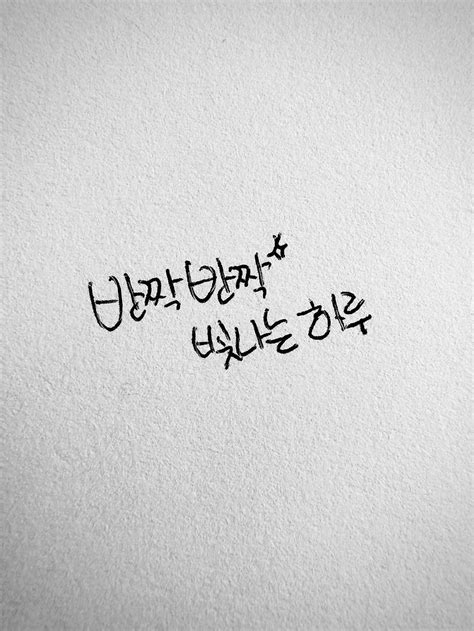 반짝반짝☆
빛나는 하루